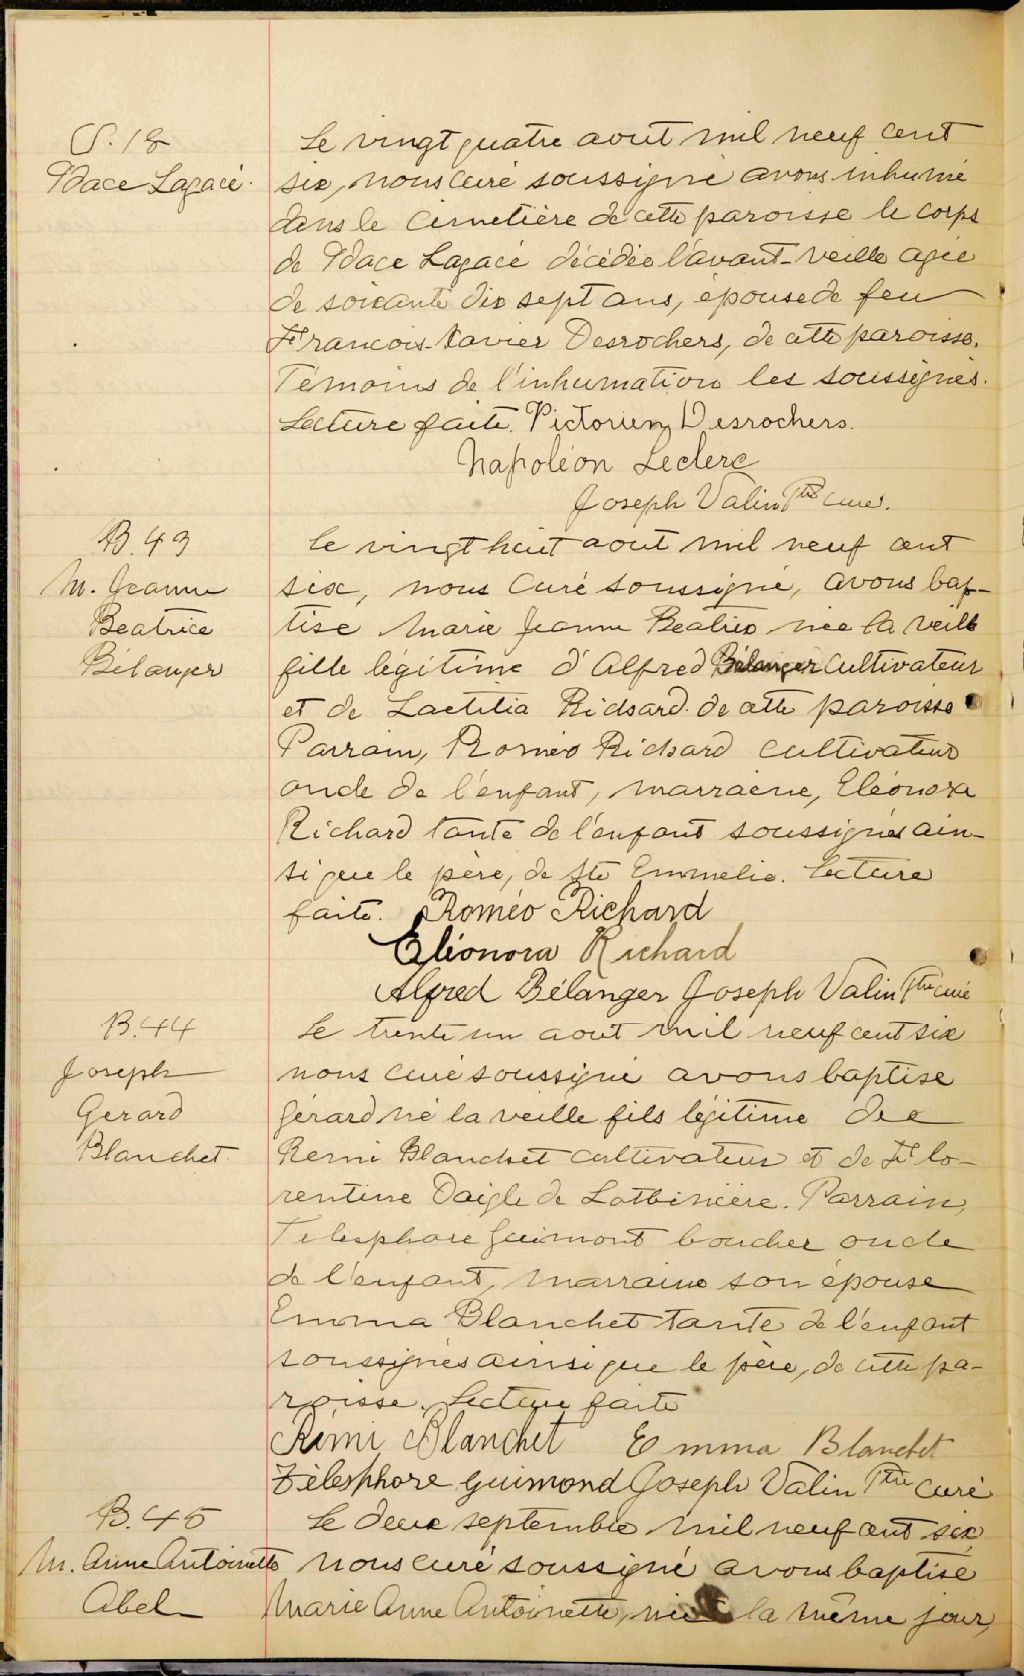 S. 18
Le vingt quatre aout mil neuf cent
Adace Lagacé.
six, nous curé soussigné avons inhumé
dans le cimetière de cette paroisse le corps
de Adace Lagacé décédée l'avant-veille agée
de soixante dix sept ans, épouse de feu
Francois-Xavier Desrochers, de cette paroisse.
Témoins de l'inhumation les soussignés.
Lecture faite. Victorien Desrochers.
Napoléon Leclerc
Joseph Valin Ptre curé.
B. 43
Le vingt huit aout mil neuf cent
M. Jeanne
six, nous curé soussigné, avons bap-
Beatrice
tise Marie Jeanne Beatrice née la veille
Bélanger
fille légitime d'Alfred Bélanger cultivateur
et de Laetitia Richard de cette paroisse
Parrain, Roméo Richard cultivateur
oncle de l'enfant, marraine, Eléonora
Richard tante de l'enfant soussignés ain-
si que le père, de Ste Emmelie. Lecture
faite. Roméo Richard
Eléonora Richard
Alfred Bélanger Joseph Valin Ptre curé
B. 44
Le trente un aout mil neuf cent six
Joseph
nous curé soussigné avons baptise
Gerard
Gérard né la veille fils légitime de
Blanchet.
Remi Blanchet cultivateur et de Flo-
rentine Daigle de Lotbinière. Parrain,
Telesphore Guimont boucher oncle
de l'enfant, marraine son épouse
Emma Blanchet tante de l'enfant
soussignés ainsi que le père, de cette pa-
roisse. Lecture faite
Rémi Blanchet Emma Blanchet
Télesphore Guimond Joseph Valin Ptre curé
B. 45
Le deux septembre mil neuf cent six,
M. Anne Antoinette
nous curé soussigné avons baptisé
Abel
Marie Anne Antoinette, née la même jour,